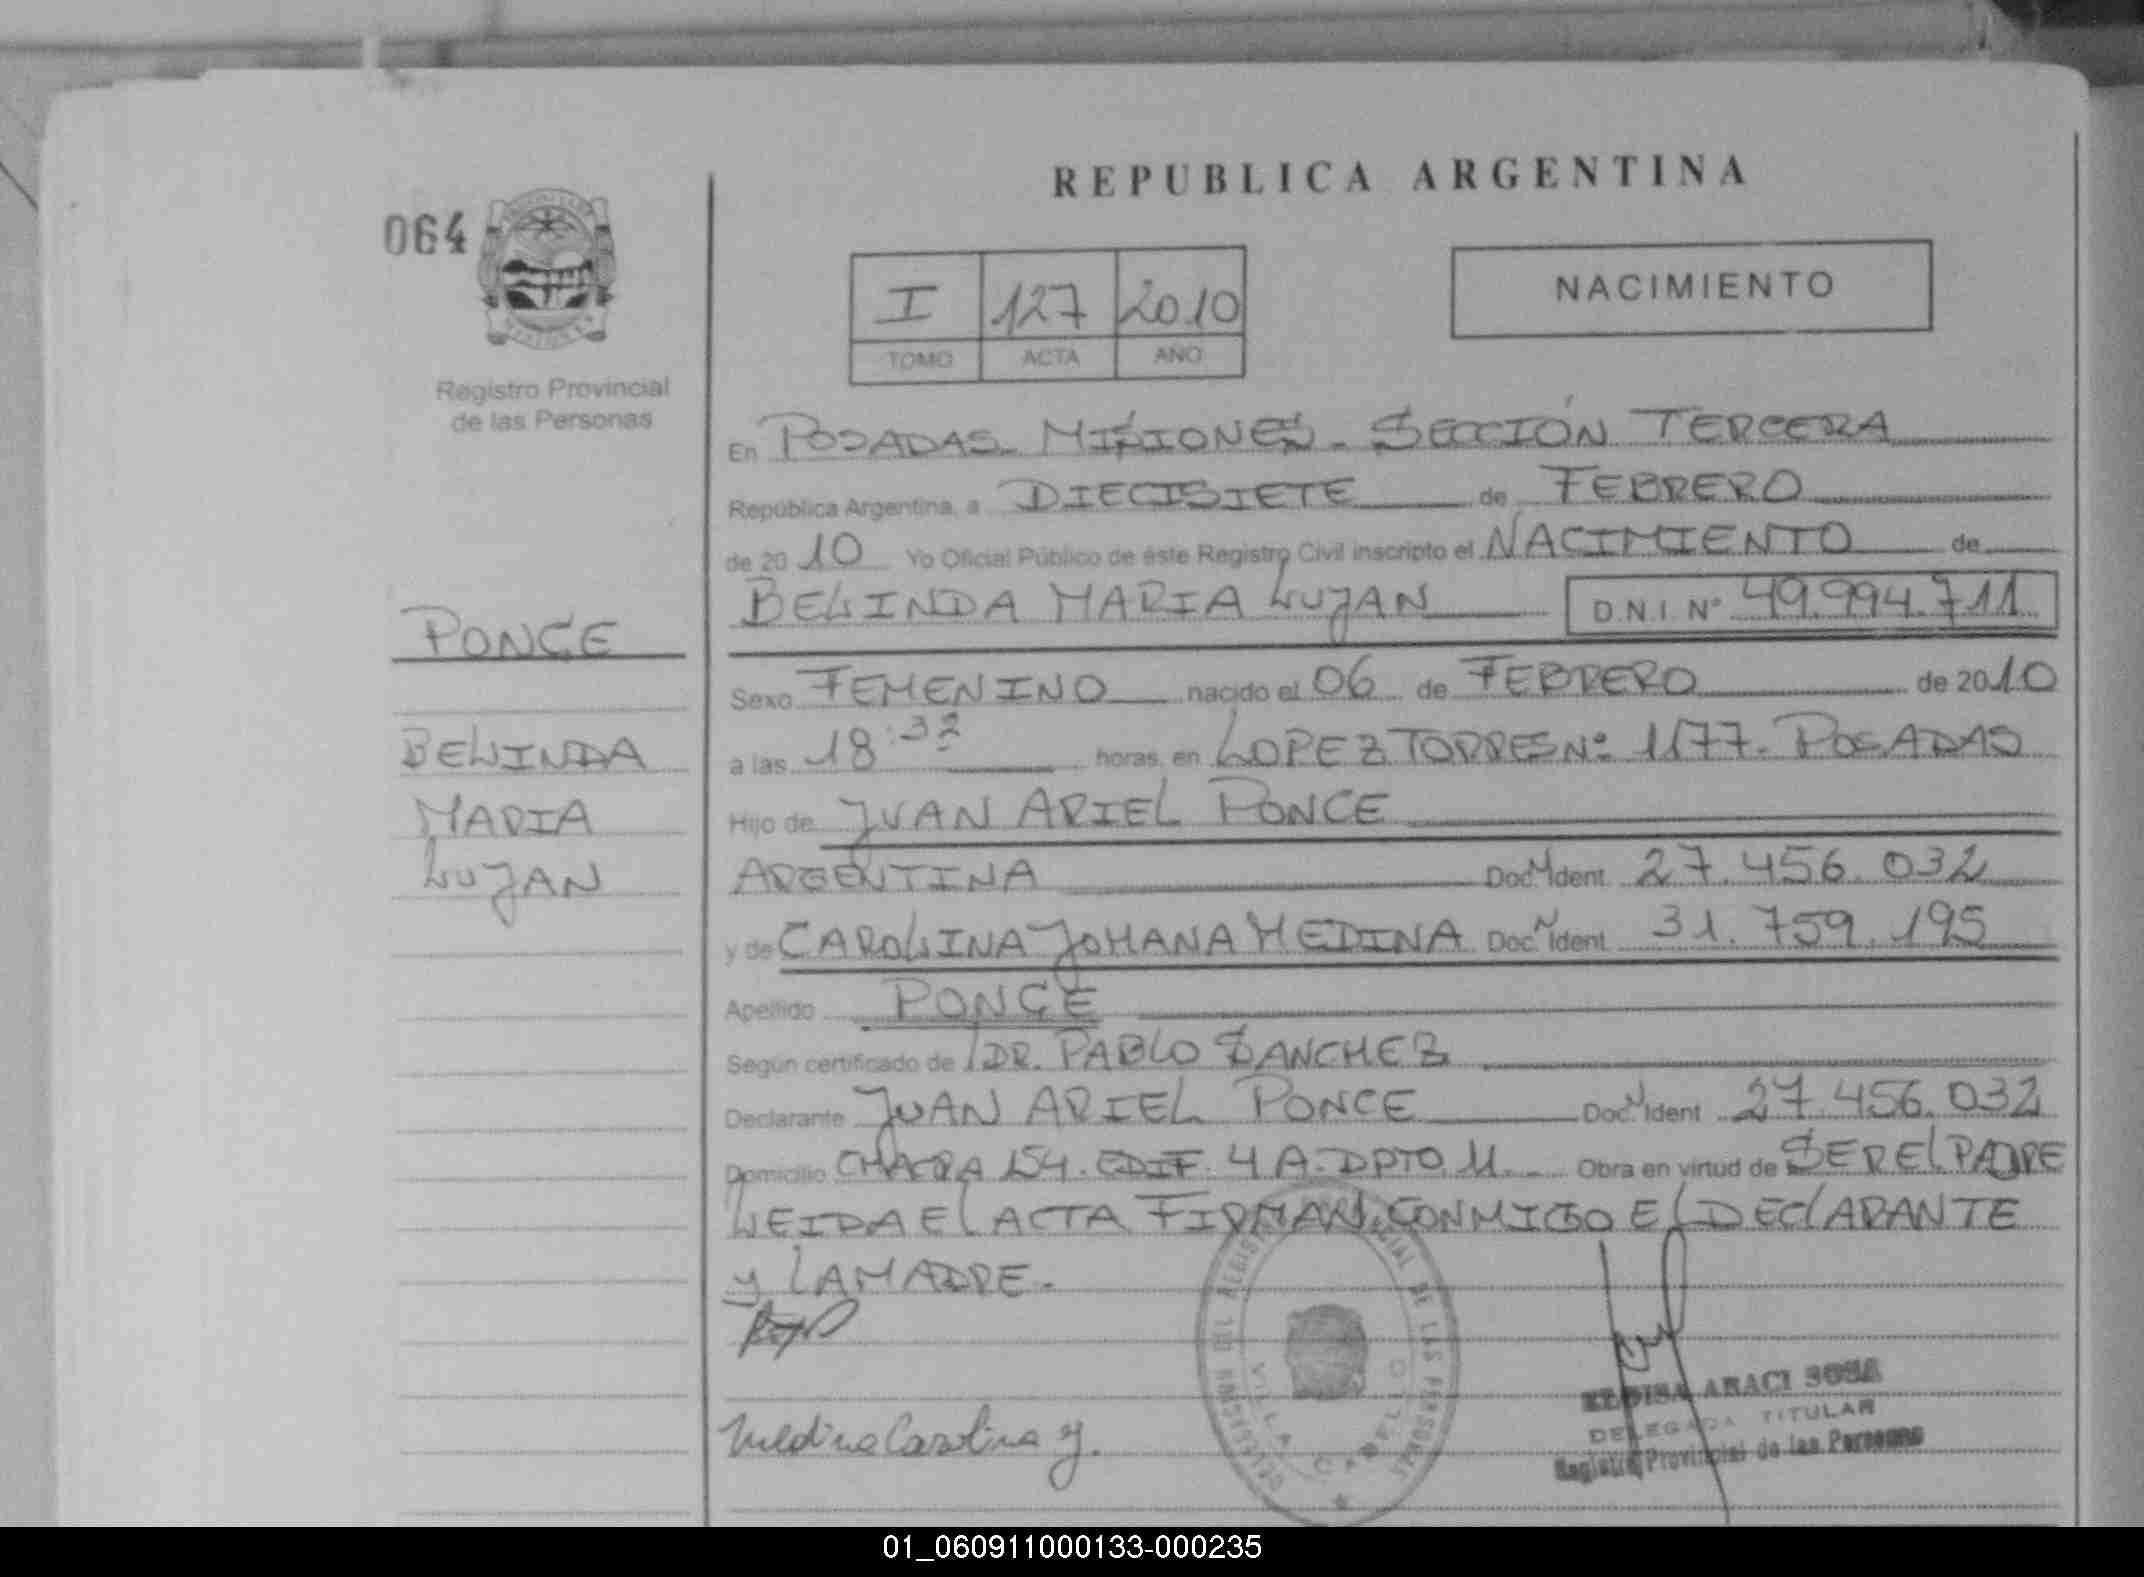 REPUBLICA ARGENTINA
064
NACIMIENTO
I 127 2010
TOMO ACTA AÑO
Registro Provincial
de las Personas
En POSADAS - MISIONES - SECCIÓN TERCERA
República Argentina, a DIECISIETE de FEBRERO
de 20 10 Yo Oficial Público de éste Registro Civil inscripto el NACIMIENTO de
BELINDA MARIA LUJAN D.N.I. Nº 49.994.711
PONCE
Sexo FEMENINO nacido el 06 de FEBRERO de 2010
BELINDA
a las 18:32 horas, en LOPEZ TORRES Nº 1177. POSADAS
MARIA
Hijo de JUAN ARIEL PONCE
LUJAN
ARGENTINA Doc. Ident. 27.456.032
y de CAROLINA JOHANA MEDINA Doc. Ident. 31.759.195
Apellido PONCE
Según certificado de DR. PABLO SANCHEZ
Declarante JUAN ARIEL PONCE Doc. Ident. 27.456.032
Domicilio CHACRA 154. EDIF. 4 A. DPTO 11. Obra en virtud de SER EL PADRE
LEIDA EL ACTA FIRMAN CONMIGO EL DECLARANTE
y LA MADRE.-
Medina Carolina J.
DELEGACION DEL REGISTRO PROVINCIAL DE LAS PERSONAS
VILLA CABELLO
ARACI SOSA
DELEGADA TITULAR
Registro Provincial de las Personas
01_060911000133-000235